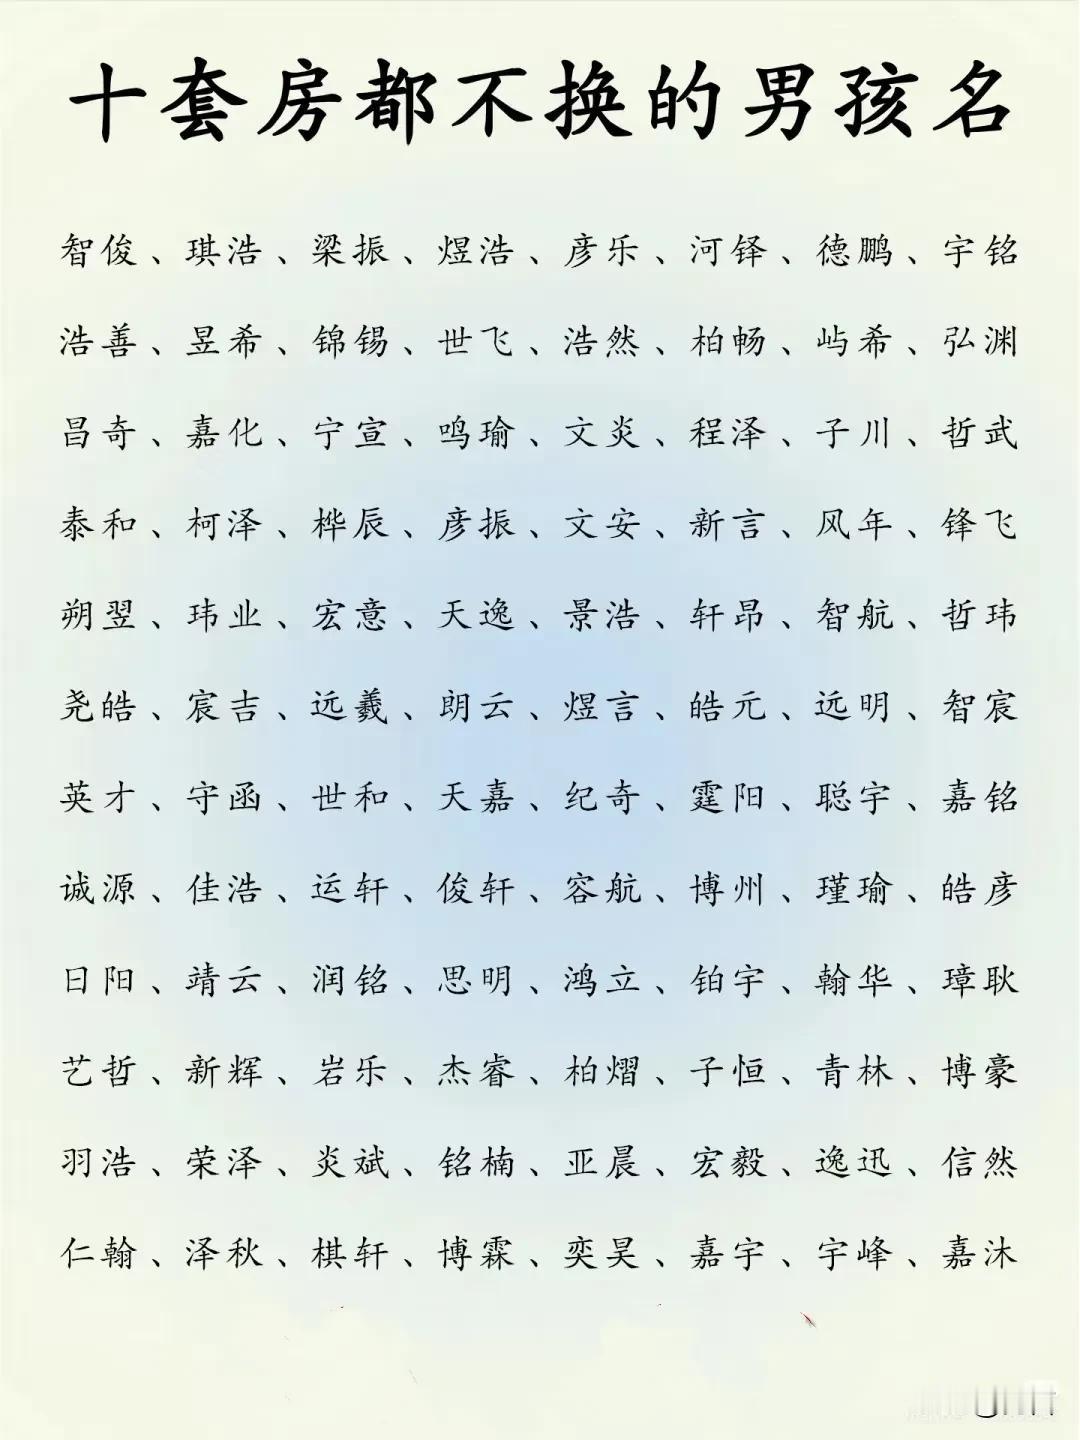 十套房都不换的男孩名
智俊、琪浩、梁振、煜浩、彦乐、河铎、德鹏、宇铭
浩善、昱希、锦锡、世飞、浩然、柏畅、屿希、弘渊
昌奇、嘉化、宁宣、鸣瑜、文炎、程泽、子川、哲武
泰和、柯泽、桦辰、彦振、文安、新言、风年、锋飞
朔翌、玮业、宏意、天逸、景浩、轩昂、智航、哲玮
尧皓、宸吉、远羲、朗云、煜言、皓元、远明、智宸
英才、守函、世和、天嘉、纪奇、霆阳、聪宇、嘉铭
诚源、佳浩、运轩、俊轩、容航、博州、瑾瑜、皓彦
日阳、靖云、润铭、思明、鸿立、铂宇、翰华、璋耿
艺哲、新辉、岩乐、杰睿、柏熠、子恒、青林、博豪
羽浩、荣泽、炎斌、铭楠、亚晨、宏毅、逸迅、信然
仁翰、泽秋、棋轩、博霖、奕昊、嘉宇、宇峰、嘉沐